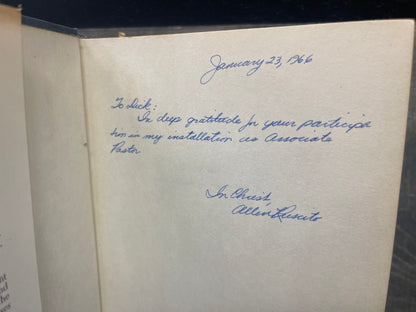 January 23, 1966
To Dick:
In deep gratitude for your participa
tion in my installation as Associate
Pastor
In Christ,
Allen